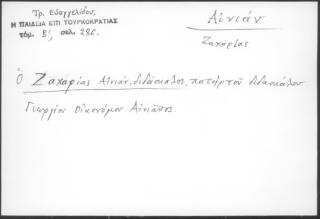 Τρ. Ευαγγελίδου,
Η ΠΑΙΔΕΙΑ ΕΠΙ ΤΟΥΡΚΟΚΡΑΤΙΑΣ
τόμ. Β', σελ. 286.
Αἰνιάν
Ζαχαρίας
Ὁ Ζαχαρίας Αἰνιάν, διδάσκαλος, πατὴρ τοῦ διδασκάλου
Γεωργίου Οἰκονόμου Αἰνιᾶνος.